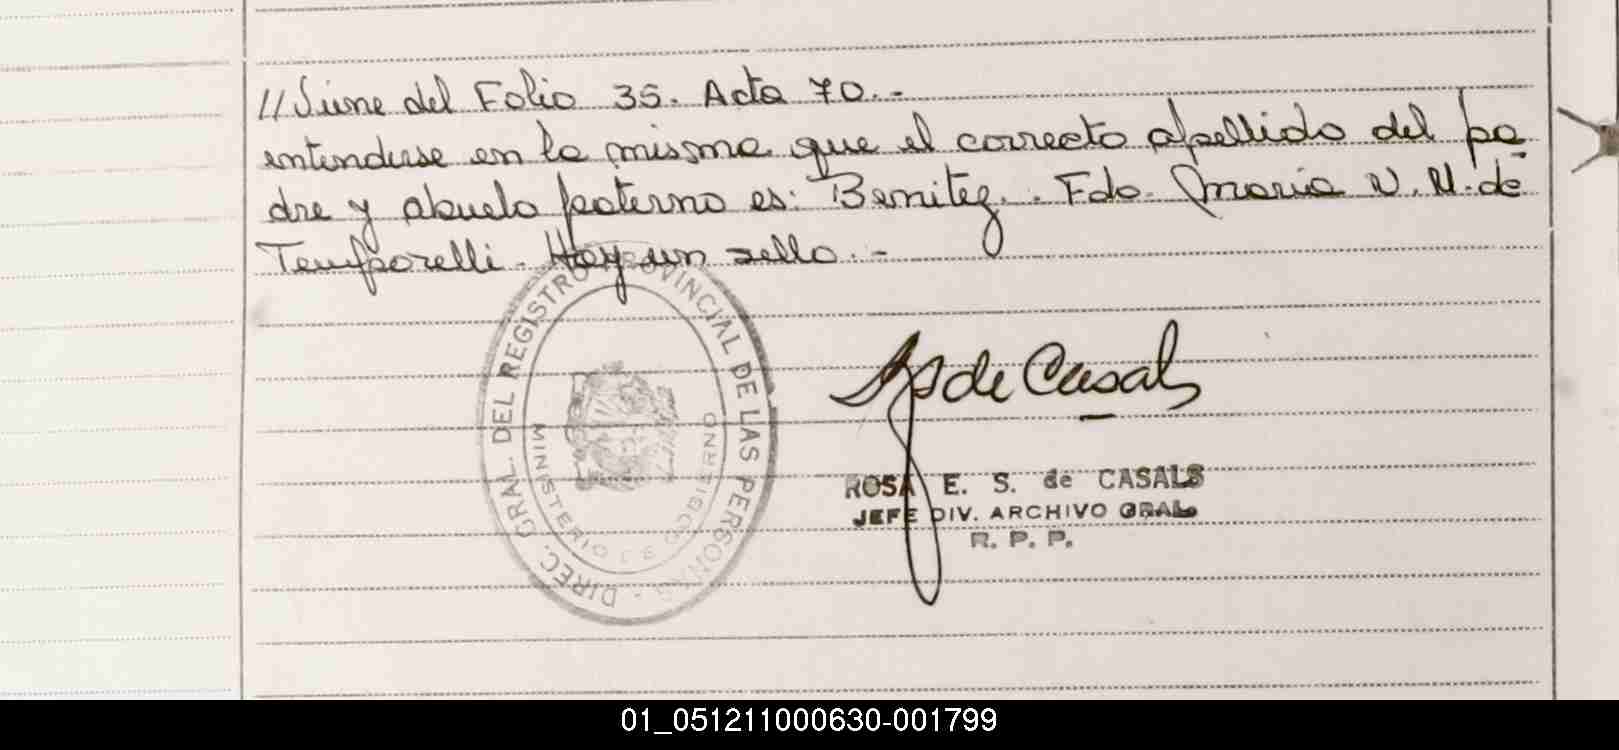 //Viene del Folio 35. Acta 70.-
entenderse en la misma que el correcto apellido del pa
dre y abuelo paterno es: Benitez.. Fdo. Maria N. N. de
Temporelli. Hay un sello.-
DIREC. GRAL. DEL REGISTRO PROVINCIAL DE LAS PERSONAS -
MINISTERIO DE GOBIERNO
de Casals
ROSA E. S. de CASALS
JEFE DIV. ARCHIVO GRAL.
R. P. P.
01_051211000630-001799